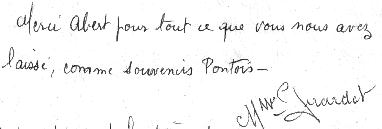 Merci Abert pour tout ce que vous nous avez
laissé, comme souvenirs Pontois -
Mme Girardet